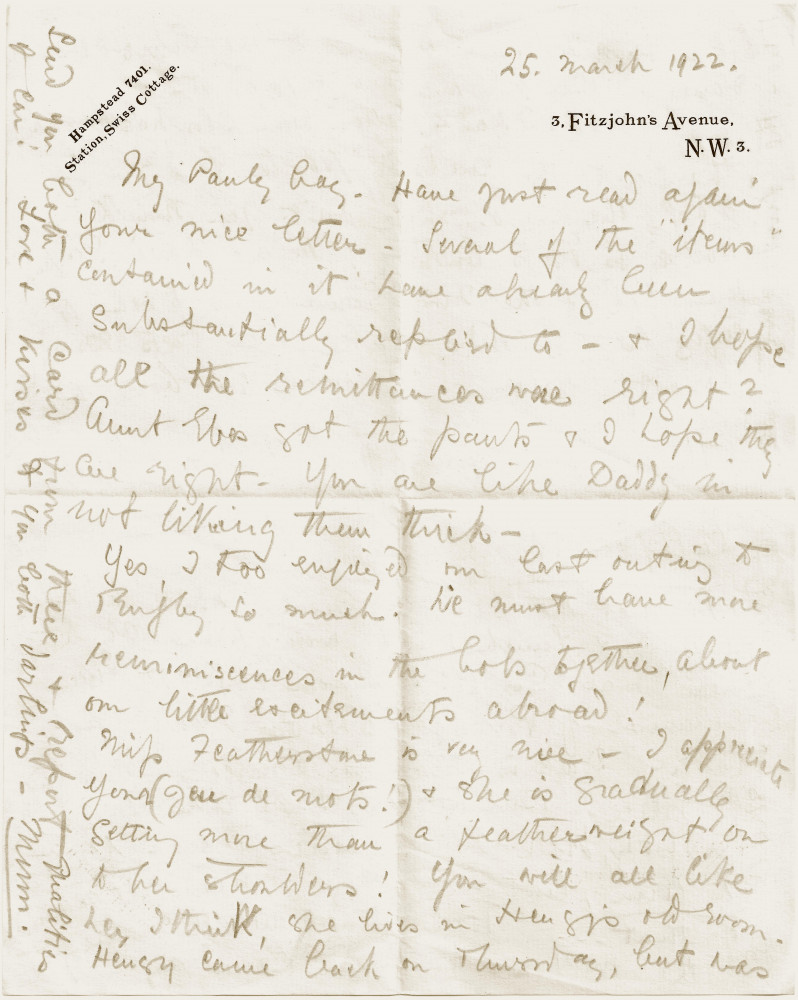 Hampstead 7401.
Station, Swiss Cottage.
25. March 1922.
3, Fitzjohn's Avenue,
N.W. 3.
My Pauly boy. Have just read again
your nice letter - Several of the "items"
contained in it have already been
substantially replied to - & I hope
all the remittances were right?
Aunt Elsa got the pants & I hope they
are right - You are like Daddy in
not liking them thick -
Yes, I too enjoyed our last outing to
Rugby so much. We must have more
reminiscences in the hols together, about
our little excitements abroad!
Miss Featherstone is very nice - I appreciate
your (jeu de mots!) & she is gradually
getting more than a featherweight on
to her shoulders! You will all like
her, I think, she lives in Hengy's old room.
Hengy came back on Thursday, but was
send you both a card from there & report qualities
of car! Love & kisses to you both darlings - Mum.